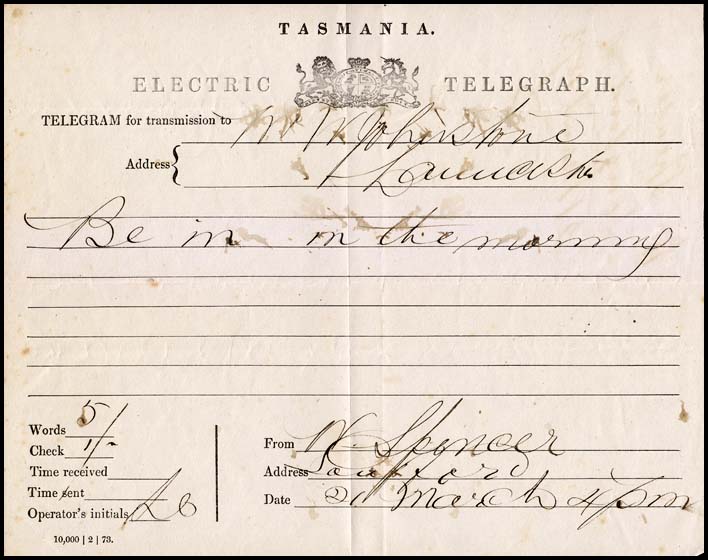 TASMANIA.
ELECTRIC TELEGRAPH.
TELEGRAM for transmission to W W Johnstone
Address
Be in in the morning
Words 5/
Check 1/-
Time received
Time sent
Operator's initials
From W Spencer
Address
Date 21 March 4 pm
10,000 | 2 | 73.